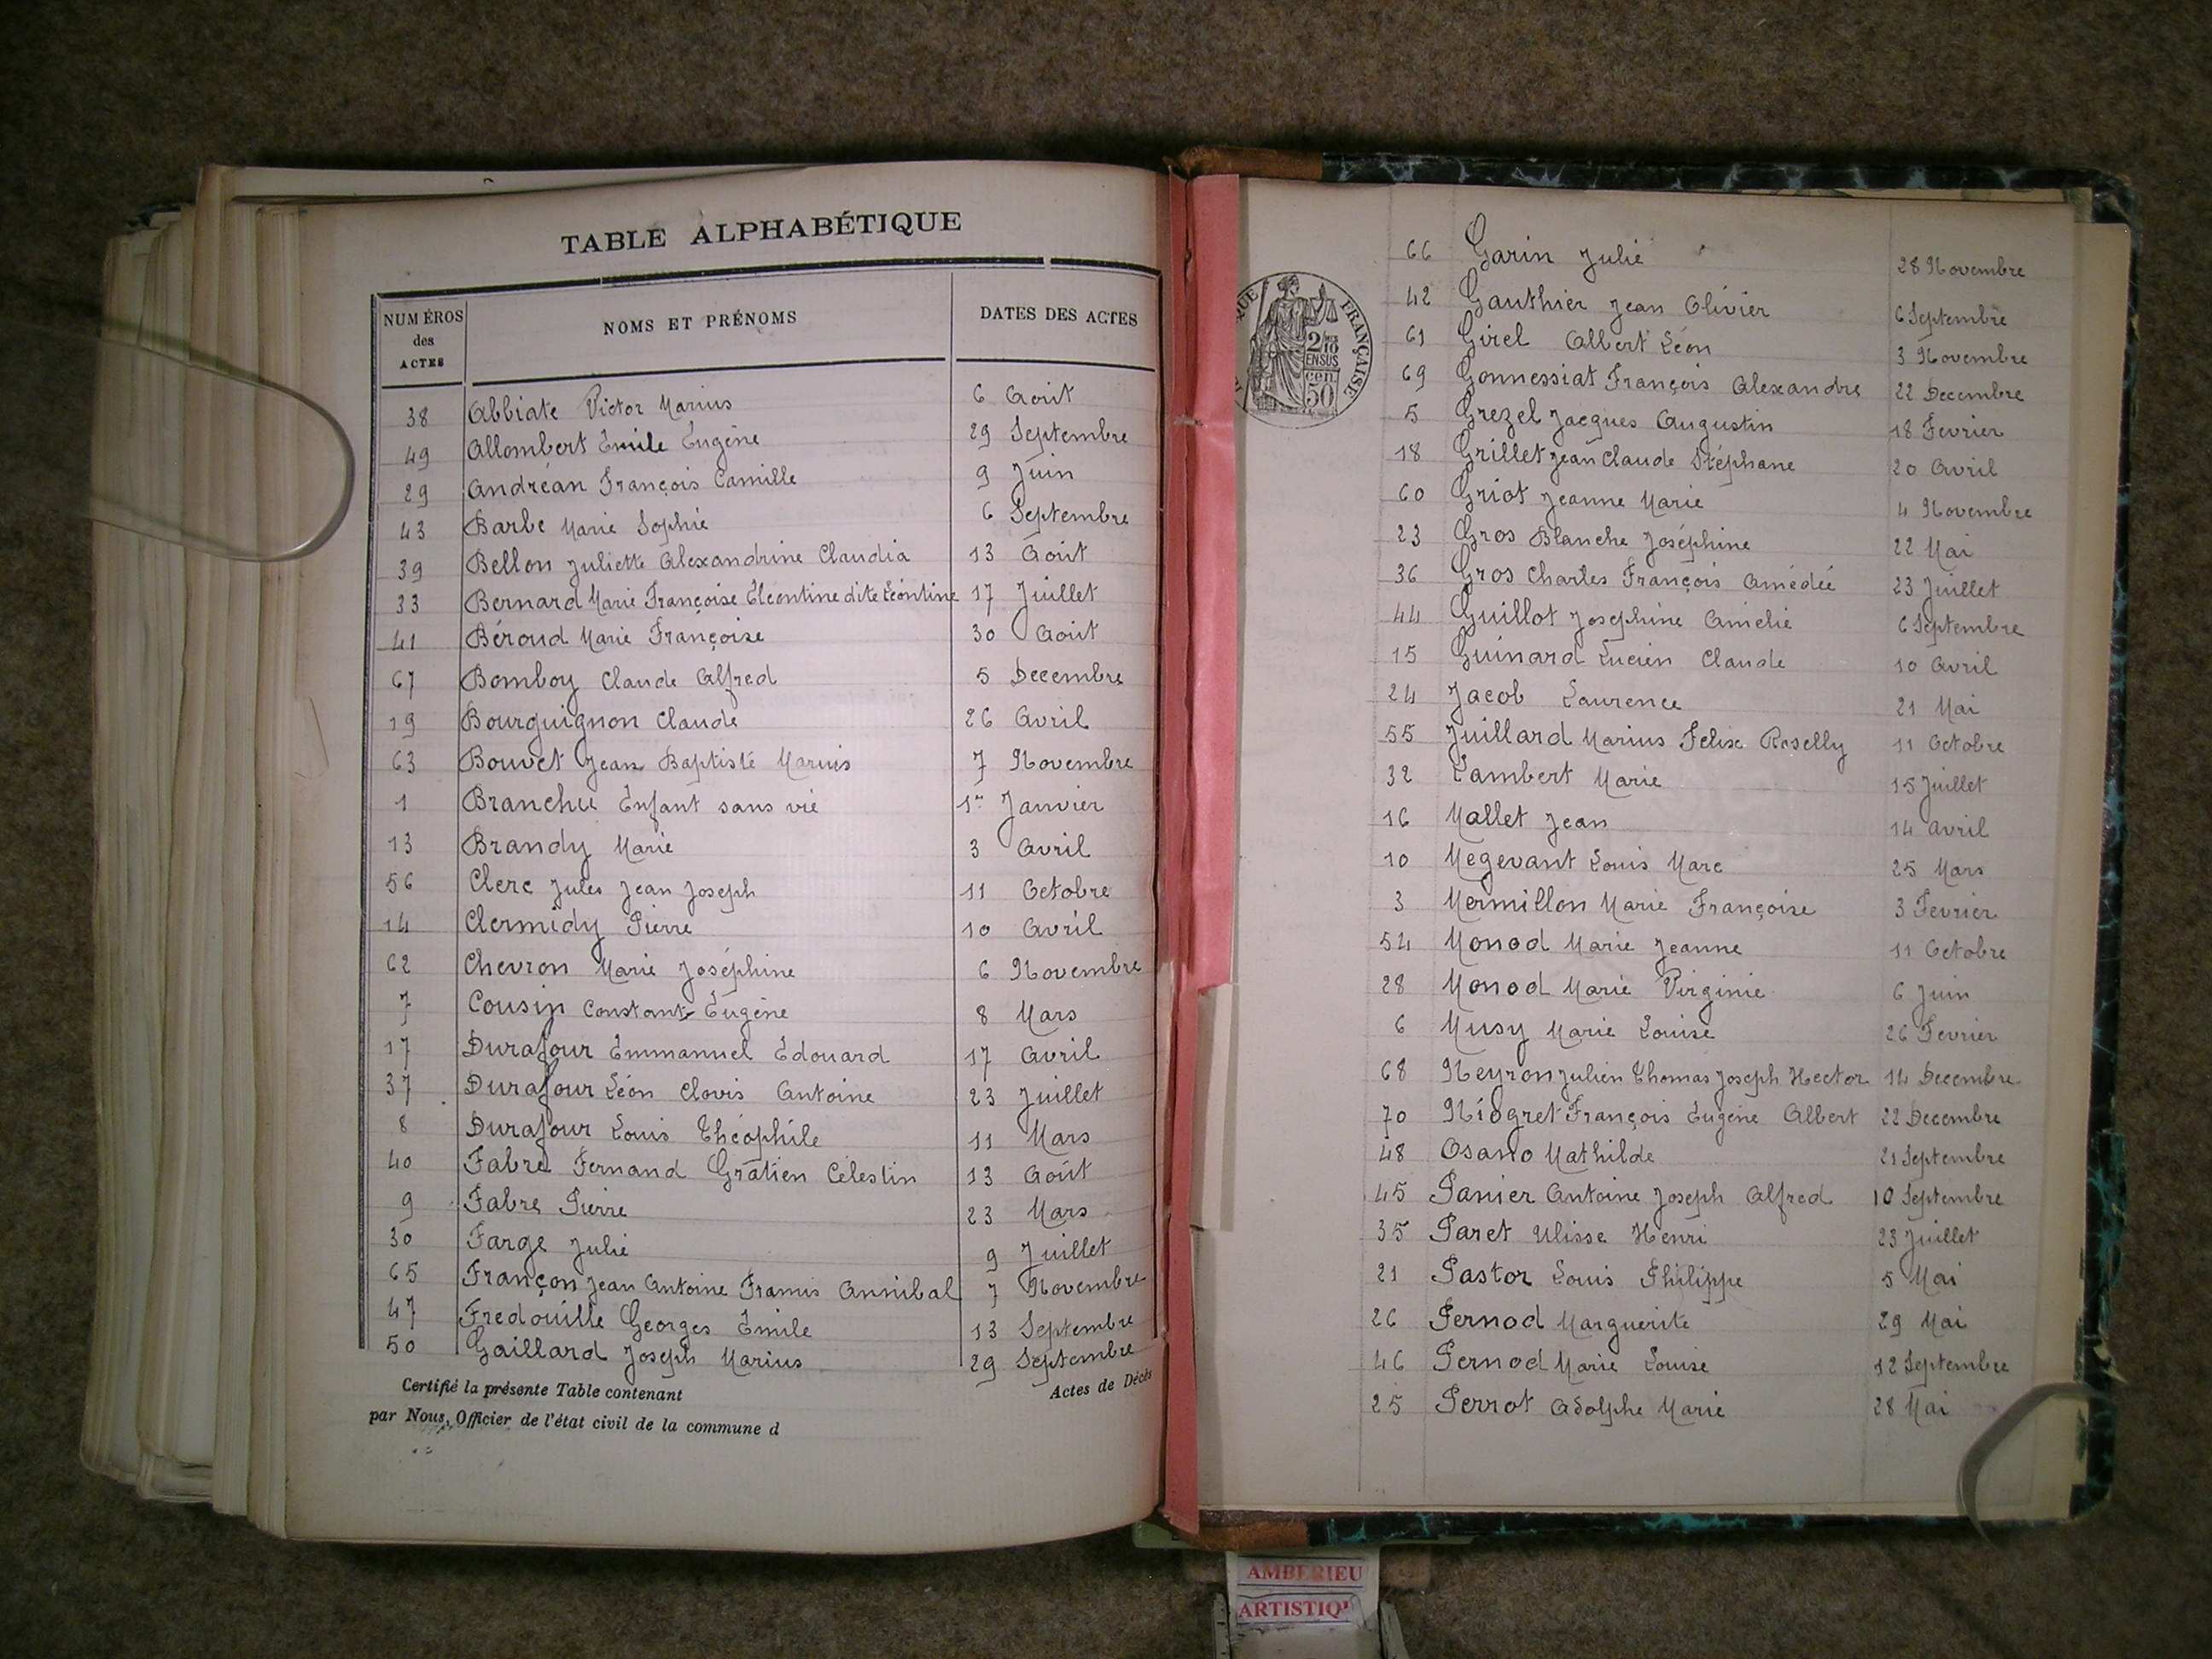 TABLE ALPHABÉTIQUE
NUMÉROS des ACTES NOMS ET PRÉNOMS DATES DES ACTES
38 Abbiate Victor Marius 6 Août
49 Allombert Emile Eugène 29 Septembre
29 Andréan François Camille 9 Juin
43 Barbe Marie Sophie 6 Septembre
39 Bellon Juliette Alexandrine Claudia 13 Août
33 Bernard Marie Françoise Eléontine dite Léontine 17 Juillet
41 Béroud Marie Françoise 30 Août
67 Bomboy Claude Alfred 5 Decembre
19 Bourguignon Claude 26 Avril
63 Bouvet Jean Baptiste Marius 7 Novembre
1 Branchu Enfant sans vie 1er Janvier
13 Brandy Marie 3 Avril
56 Clerc Jules Jean Joseph 11 Octobre
14 Clermidy Pierre 10 Avril
62 Chevron Marie Joséphine 6 Novembre
7 Cousin Constant Eugène 8 Mars
17 Durafour Emmanuel Edouard 17 Avril
37 Durafour Léon Clovis Antoine 23 Juillet
8 Durafour Louis Théophile 11 Mars
40 Fabre Fernand Gratien Célestin 13 Août
9 Fabre Pierre 23 Mars
30 Farge Julie 9 Juillet
65 Françon Jean Antoine Annibal 7 Novembre
47 Fredouille Georges Emile 13 Septembre
50 Gaillard Joseph Marius 29 Septembre
Certifié la présente Table contenant Actes de Décès
par Nous, Officier de l'état civil de la commune d
FRANÇAISE
2/10 EN SUS
50 cen
66 Garin Julie 28 Novembre
42 Gauthier Jean Olivier 6 Septembre
61 Girel Albert Léon 3 Novembre
69 Gonnessiat François Alexandre 22 Decembre
5 Grezel Jacques Augustin 18 Fevrier
18 Grillet Jean Claude Stéphane 20 Avril
60 Griot Jeanne Marie 4 Novembre
23 Gros Blanche Joséphine 22 Mai
36 Gros Charles François Amédée 23 Juillet
44 Guillot Josephine Amélie 6 Septembre
15 Guinard Lucien Claude 10 Avril
24 Jacob Laurence 21 Mai
55 Juillard Marius Felix Roselly 11 Octobre
32 Lambert Marie 15 Juillet
16 Mallet Jean 14 Avril
10 Megevant Louis Marc 25 Mars
3 Mermillon Marie Françoise 3 Fevrier
54 Monod Marie Jeanne 11 Octobre
28 Monod Marie Virginie 6 Juin
6 Musy Marie Louise 26 Fevrier
68 Neyron Julien Thomas Joseph Hector 14 Decembre
70 Niogret François Eugène Albert 22 Decembre
48 Osano Mathilde 21 Septembre
45 Panier Antoine Joseph Alfred 10 Septembre
35 Paret Ulisse Henri 23 Juillet
21 Pastor Louis Philippe 5 Mai
26 Pernod Marguerite 29 Mai
46 Pernod Marie Louise 12 Septembre
25 Perrot Adolphe Marie 28 Mai
AMBERIEU
ARTISTIQ